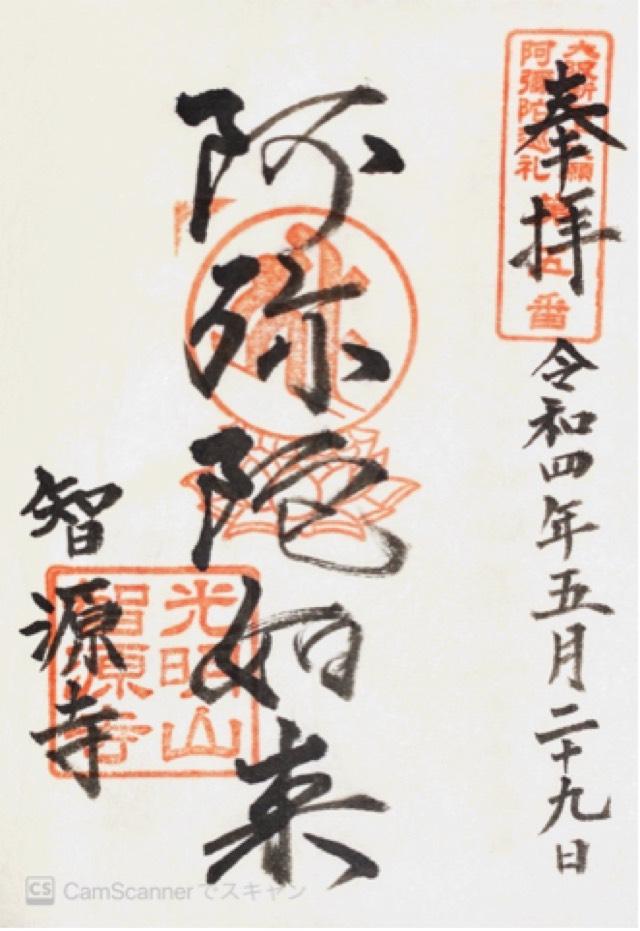 奉拝
令和四年五月二十九日
阿弥陀如来
智源寺
阿彌陀巡礼
番
光明山
智源寺
CS CamScannerでスキャン